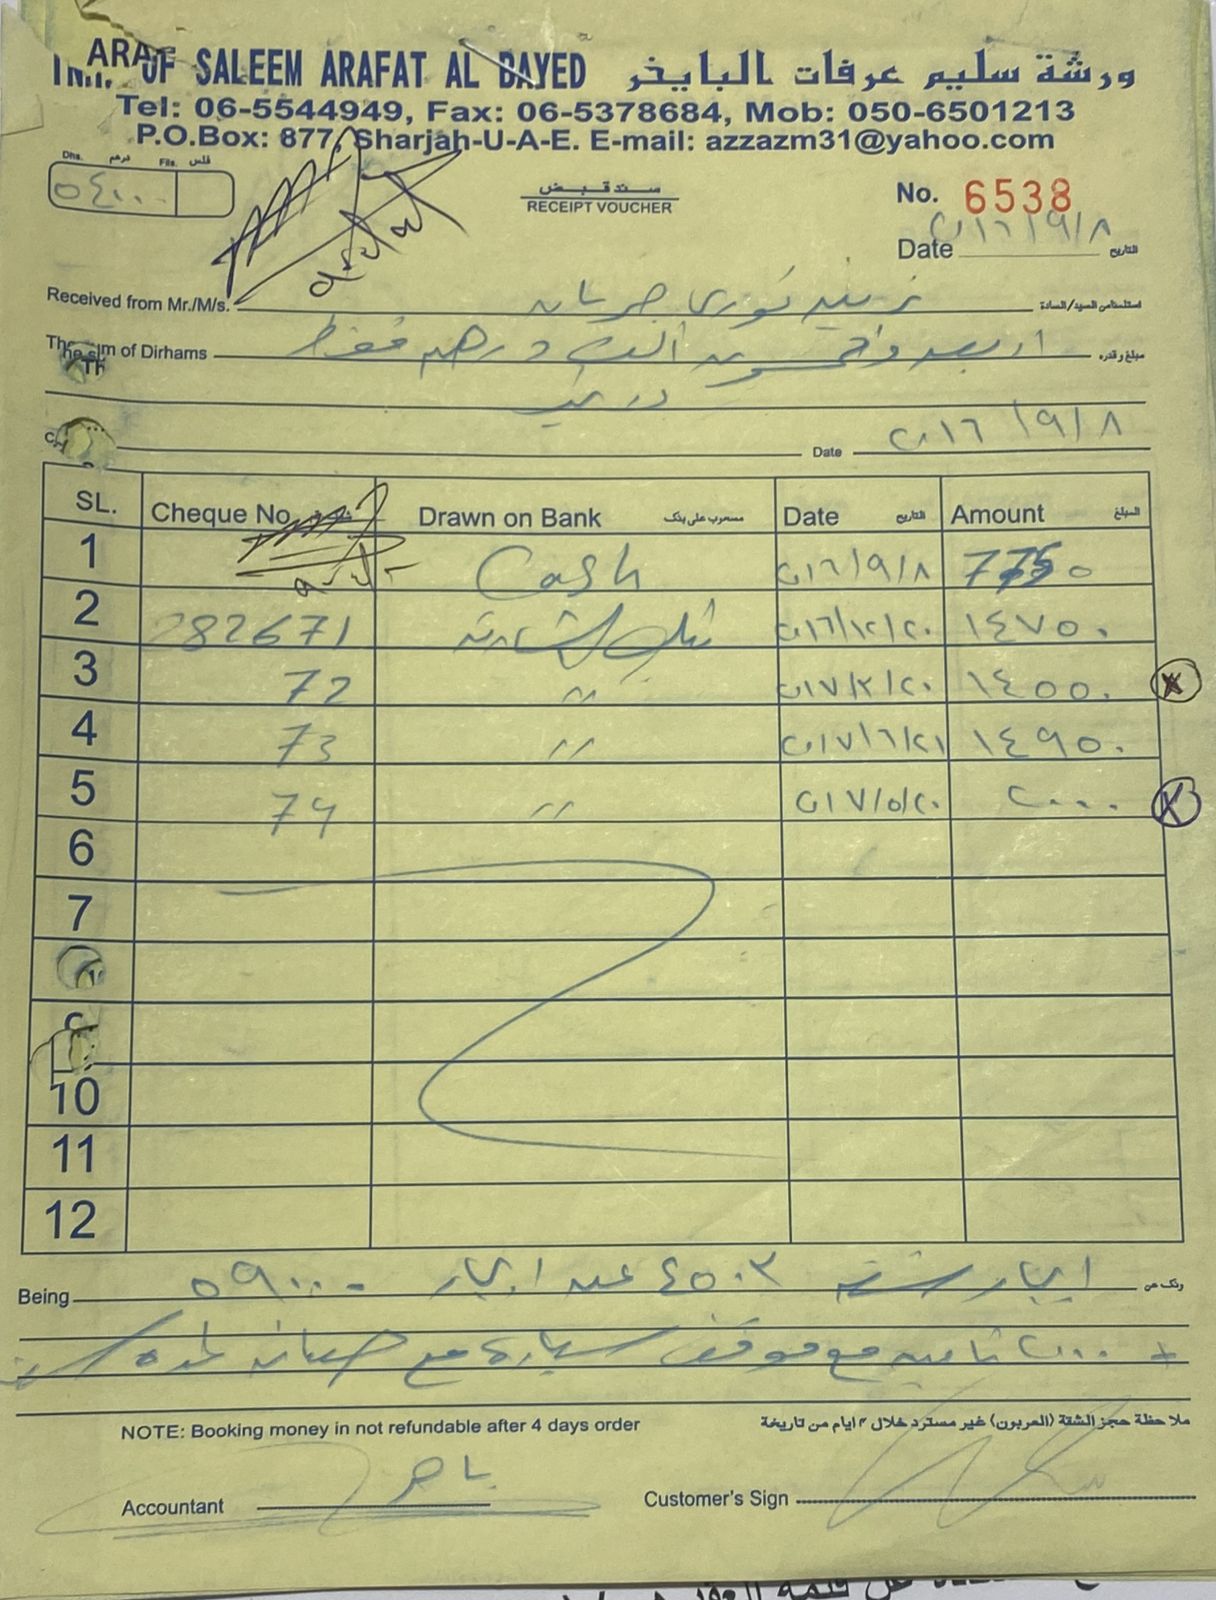 OF SALEEM ARAFAT AL BAYED ورشة سليم عرفات البايخر
Tel: 06-5544949, Fax: 06-5378684, Mob: 050-6501213
P.O.Box: 877, Sharjah-U-A-E. E-mail: azzazm31@yahoo.com
Dhs. درهم Fils. فلس
٥٤٠٠٠
سند قبض
RECEIPT VOUCHER
No. 6538
Date ٢٠١٦/٩/٨ التاريخ
Received from Mr./M/s. نوري استلمنا من السيد/السادة
The sum of Dirhams الف درهم فقط مبلغ وقدره
Date ٢٠١٦/٩/٨
SL. Cheque No. Drawn on Bank مسحوب على بنك Date التاريخ Amount المبلغ
1 Cash ٢٠١٦/٩/٨
2 282671 بنك الشارقة ٢٠١٦/١٢/٢٠ ١٤٧٥٠
3 72 " ٢٠١٧/٣/٢٠ ١٤٥٥٠
4 73 " ٢٠١٧/٦/٢١ ١٤٩٥٠
5 74 " ٢٠١٧/٥/٢٠ ٢٠٠٠
6
7
10
11
12
Being ايجار شقة ٤٥٠٣ عن ايجار ٥٩٠٠٠ وذلك عن
+ ٢٠٠٠ تامين مع موقف سيارة مع صيانة لمدة
NOTE: Booking money in not refundable after 4 days order ملاحظة حجز الشقة (العربون) غير مسترد خلال ٤ ايام من تاريخة
Accountant Customer's Sign